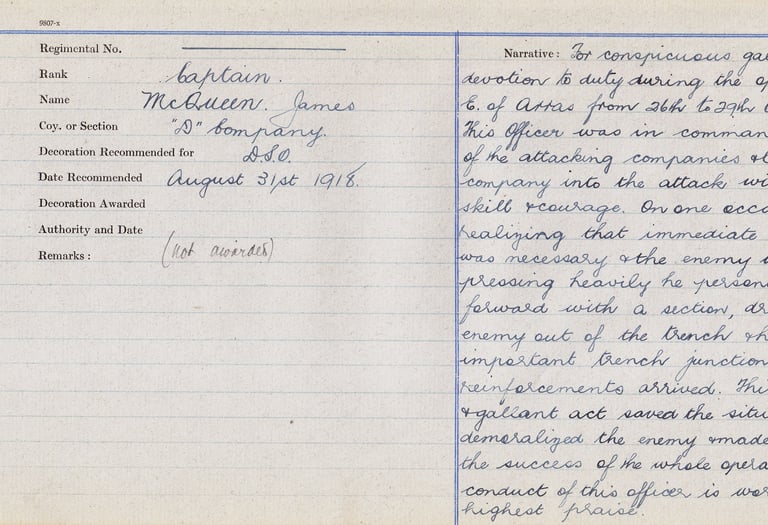 9807-x
Regimental No.
Rank Captain.
Name McQueen. James
Coy. or Section "D" Company.
Decoration Recommended for D.S.O.
Date Recommended August 31st 1918.
Decoration Awarded
Authority and Date
Remarks: (not awarded)
Narrative: For conspicuous gal
devotion to duty during the op
E. of Arras from 26th to 29th
This Officer was in comman
of the attacking companies &
company into the attack wi
skill & courage. On one occa
realizing that immediate
was necessary & the enemy
pressing heavily he person
forward with a section, dr
enemy out of the trench & h
important trench junction
reinforcements arrived. Thi
& gallant act saved the situ
demoralized the enemy & made
the success of the whole opera
conduct of this officer is wor
highest praise.